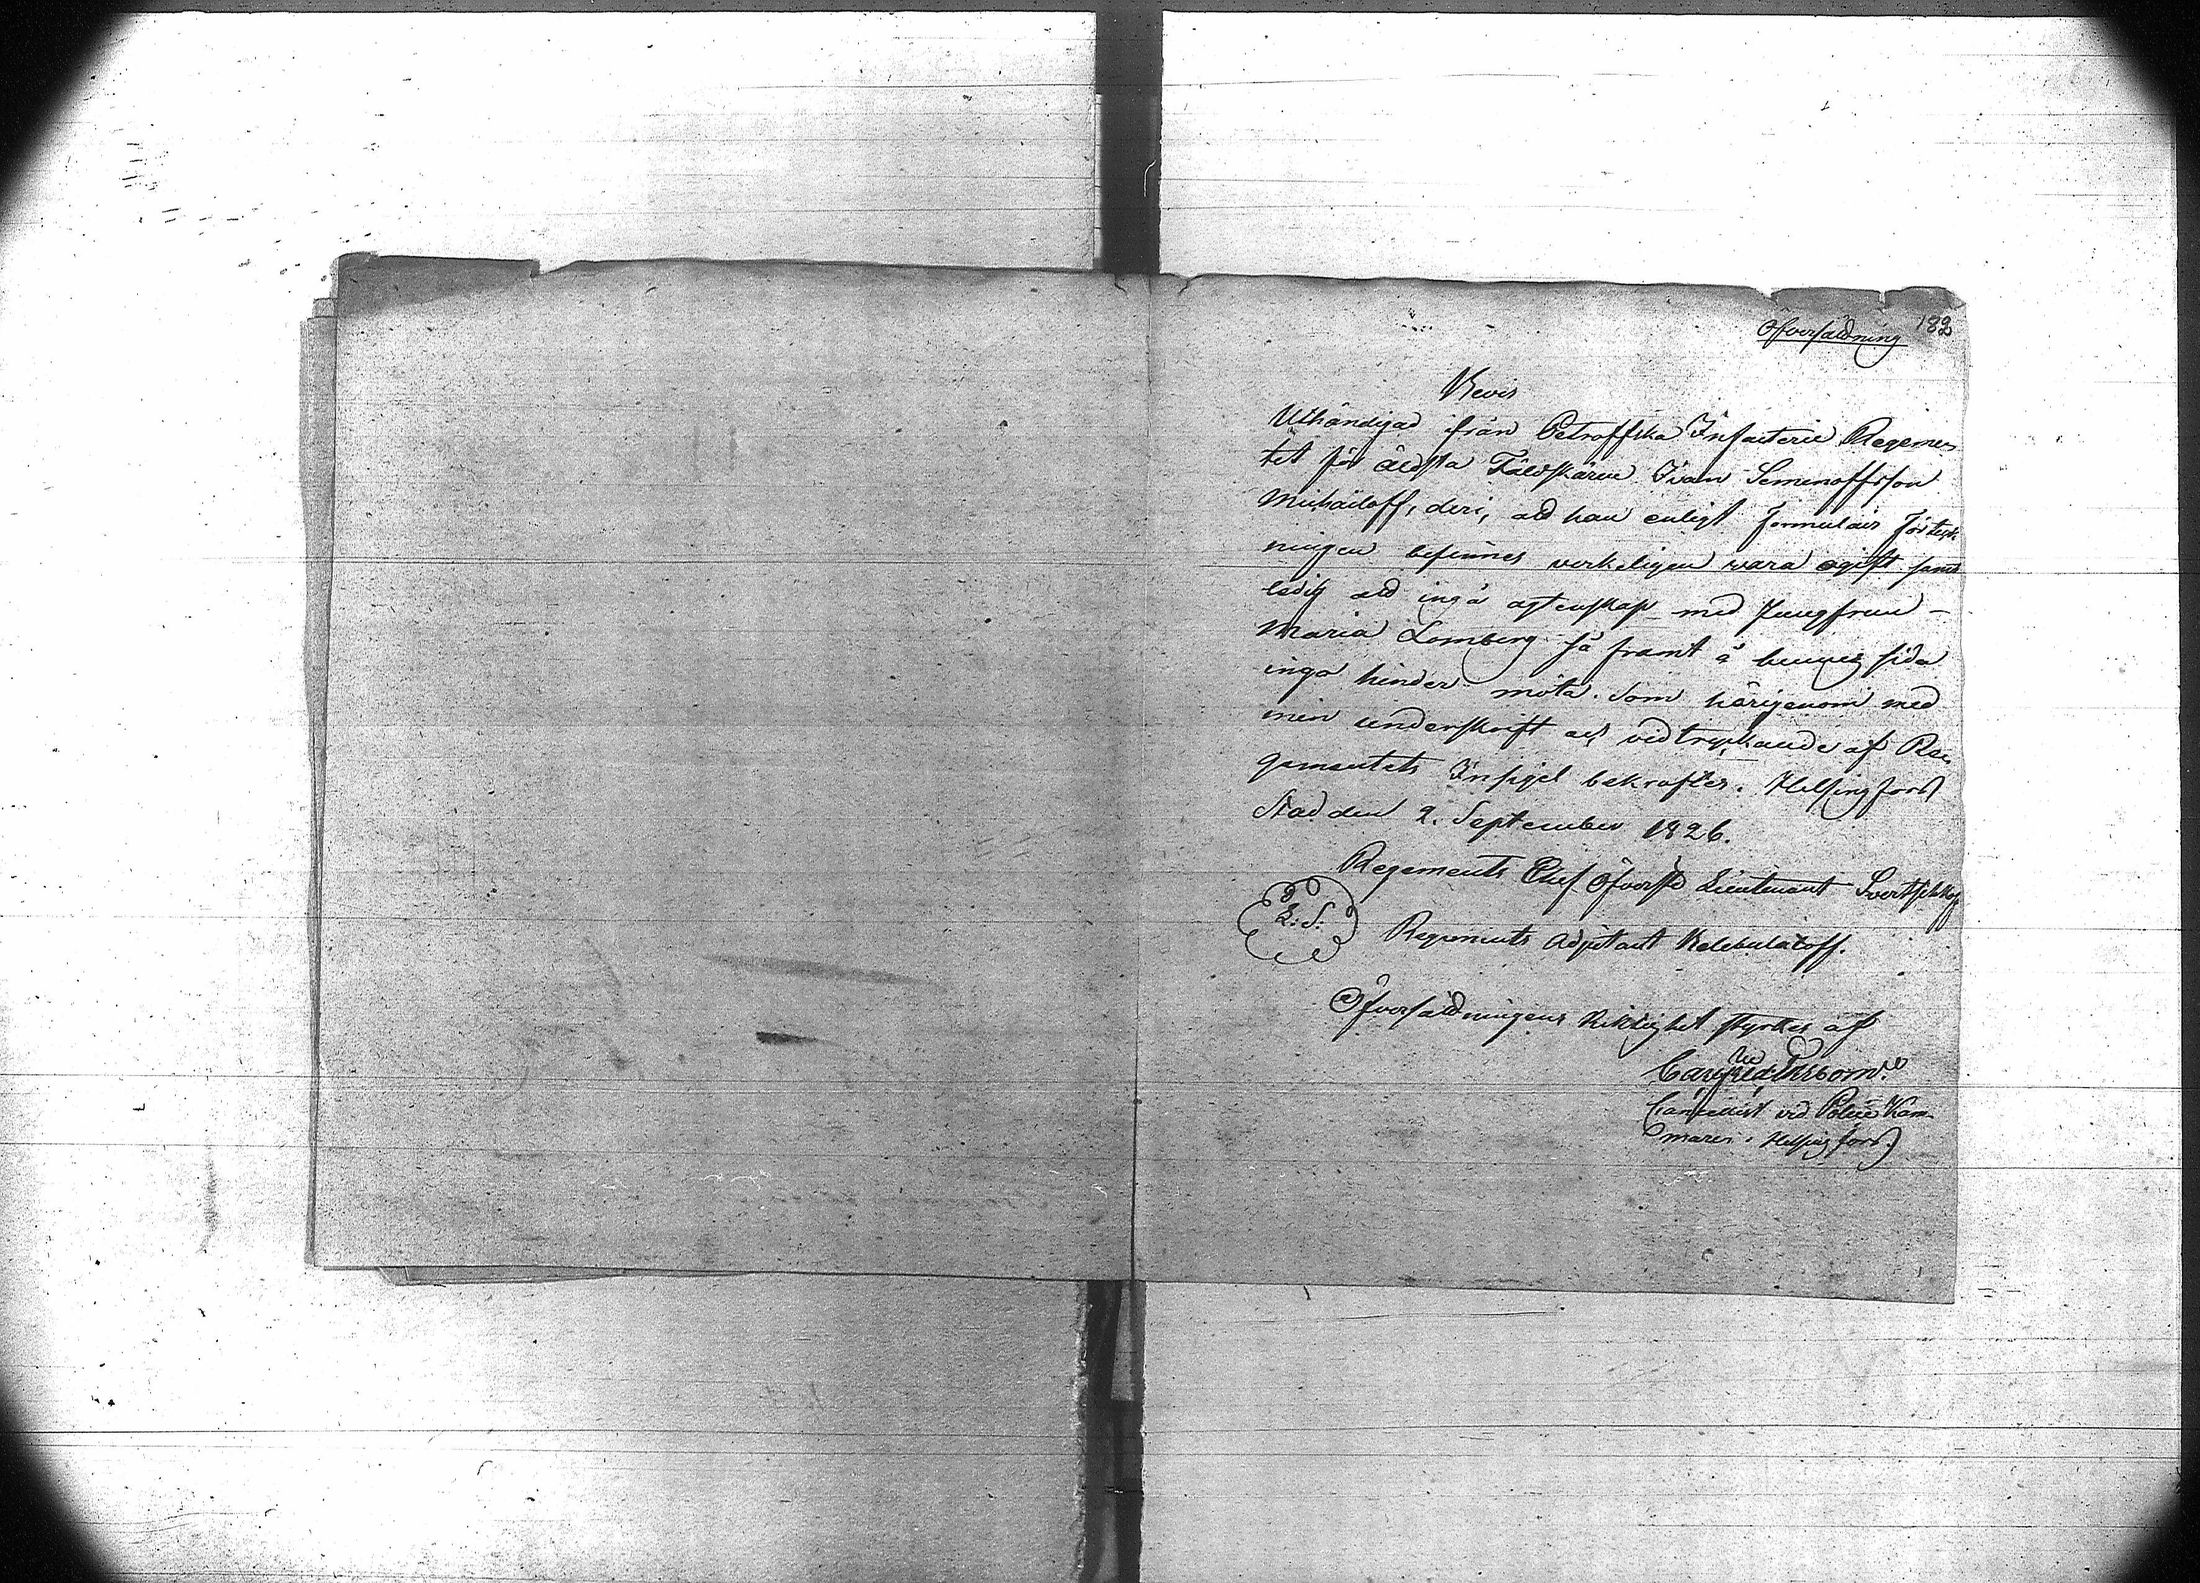 182
Öfversättning
Bevis
Uthändigad ifrån Petroffska Infanterie Regemen
tet för äldsta Fältskären Ivan Semenoffsson
Michailoff, deri, att han enligt formulair förteck
ningen befinnes verkeligen vara ogift samt
ledig att ingå ägtenskap med Jungfrun
Maria Lomberg så framt å hennes sida
inga hinder möta. Som härigenom med
min underskrift och vidtryckande af Re
gementets Insigel bekräftes. Helsingfors
Stad den 2. September 1826.
Regements Chef Öfverste Lieutenant
L. S.
Regements Adjutant
Öfversättningens Riktighet styrkes af
Cancellist vid Police Kam
maren i Helsingfors